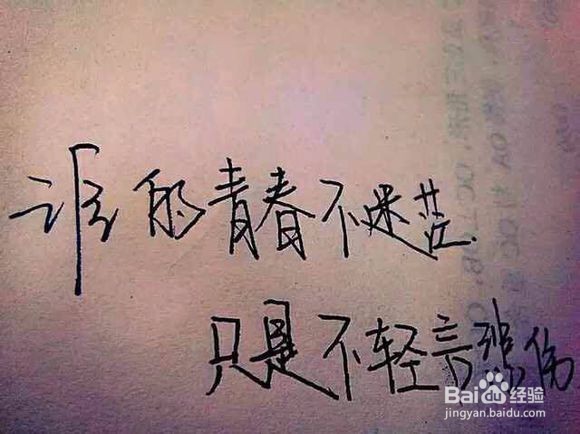 谁的青春不迷茫.
只是不轻言悲伤
Bai du 经验
jingyan.baidu.com